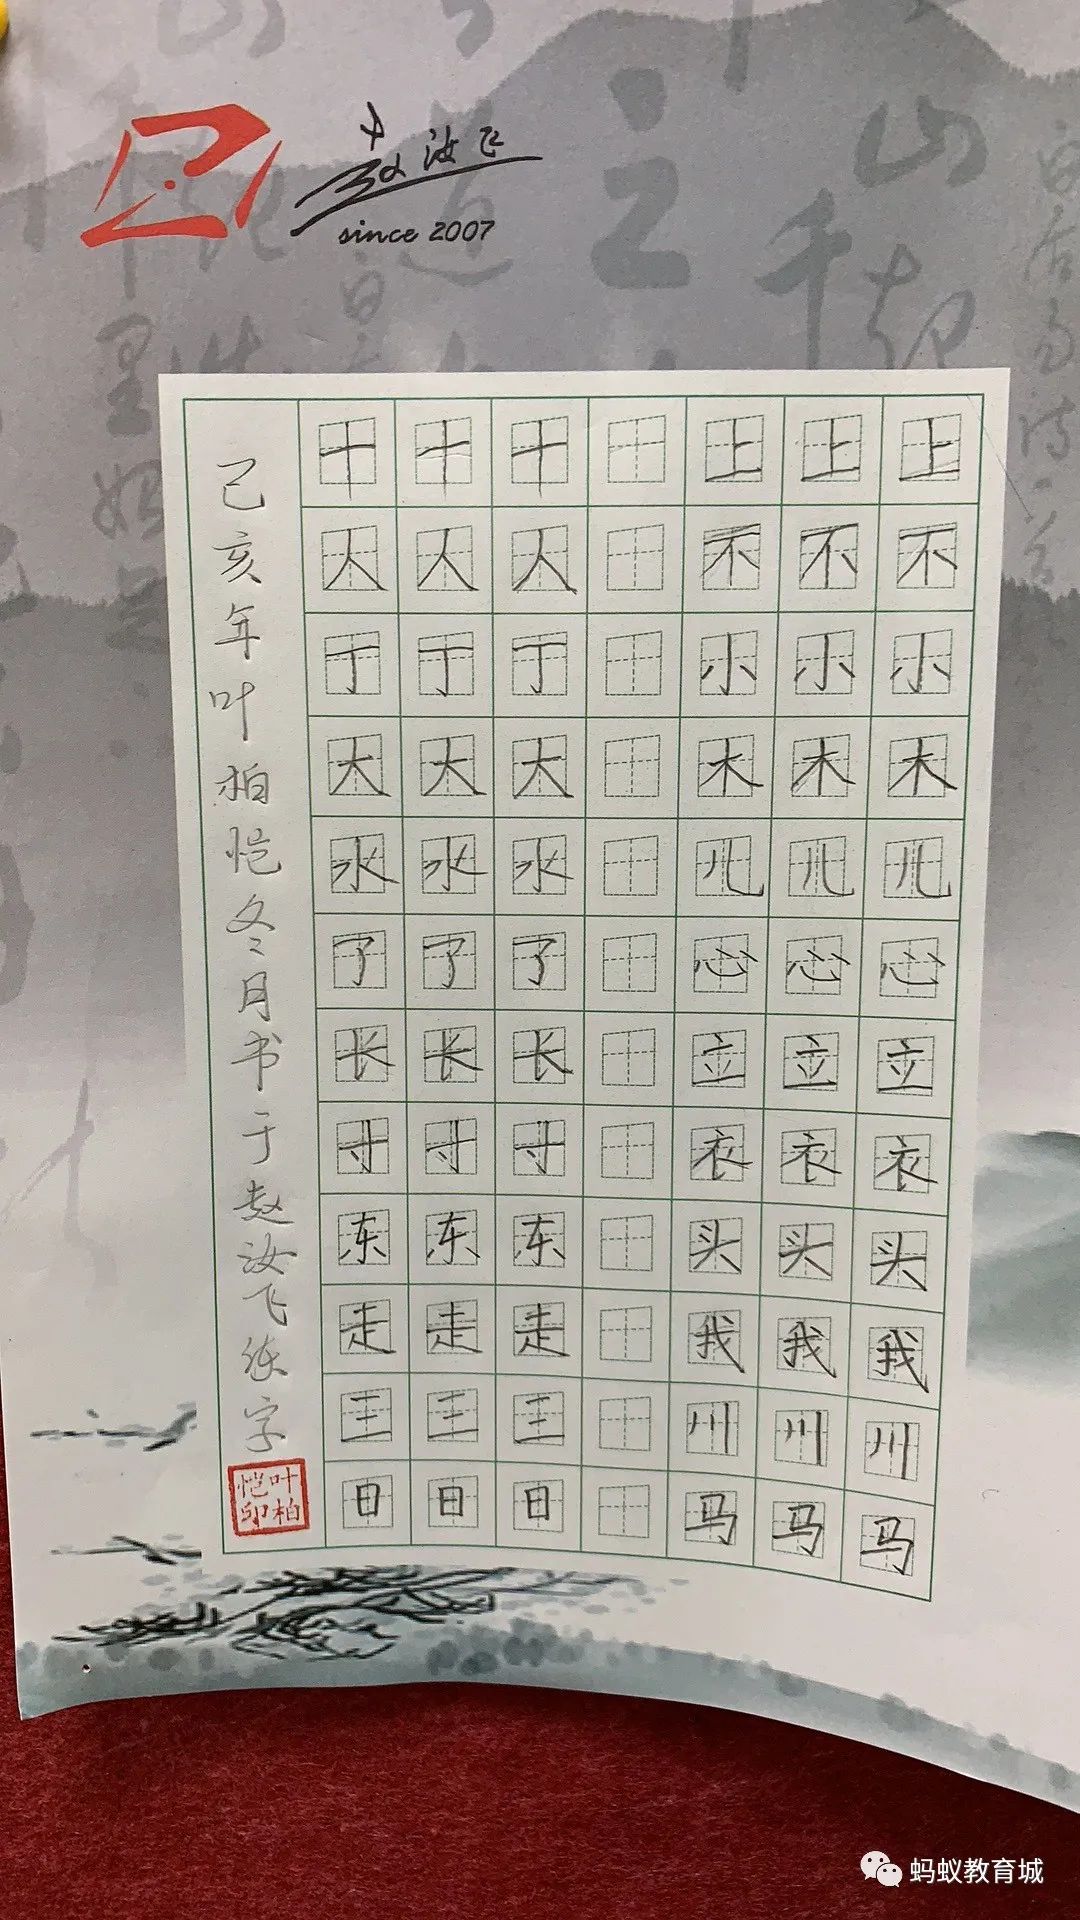 赵汝飞
since 2007
上 上 上 十 十 十
不 不 不 人 人 人
小 小 小 丁 丁 丁
木 木 木 大 大 大
儿 儿 儿 水 水 水
心 心 心 了 了 了
立 立 立 长 长 长
衣 衣 衣 寸 寸 寸
头 头 头 东 东 东
我 我 我 走 走 走
川 川 川 王 王 王
马 马 马 日 日 日
己亥年叶柏恺冬月书于赵汝飞练字
叶柏恺印
蚂蚁教育城